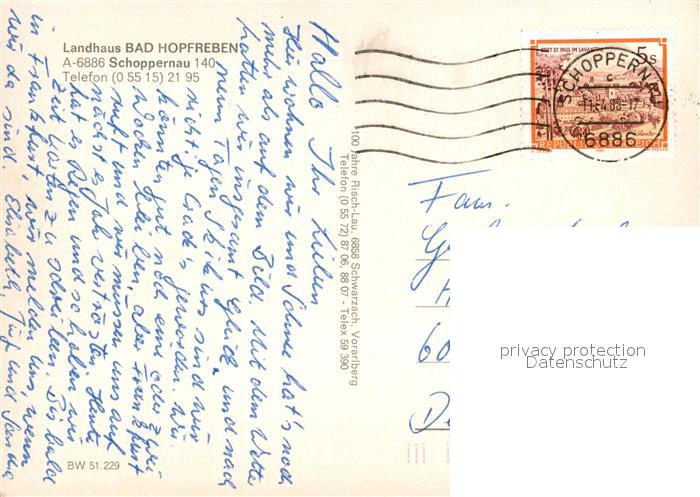 Landhaus BAD HOPFREBEN
A-6886 Schoppernau 140
Telefon (0 55 15) 21 95
Hallo Ihr Lieben
Hier wohnen wir und Schnee hat's noch
mehr als auf dem Bild. Mit dem Wetter
hatten wir insgesamt Glück und nach
neun Tagen Skikurs sind wir
richtige Cracks geworden. Wir
könnten gut noch eine oder zwei
Wochen bleiben, aber Frankfurt
ruft und wir müssen uns auf
nächstes Jahr vertrösten. Heute
hat es Regen und so haben wir
Zeit Karten zu schreiben. Bis bald
in Frankfurt, wir melden uns, wenn
wir da sind. Elisabeth, und
BW 51.229
100 Jahre Risch-Lau, 6858 Schwarzach, Vorarlberg
Telefon (0 55 72) 87 06, 88 07 - Telex 59 390
STIFT ST. PAUL IM LAVANTTAL
5S
REPUBLIK ÖSTERREICH
SCHOPPERNAU
c
6886
Fam.
60
D
privacy protection
Datenschutz